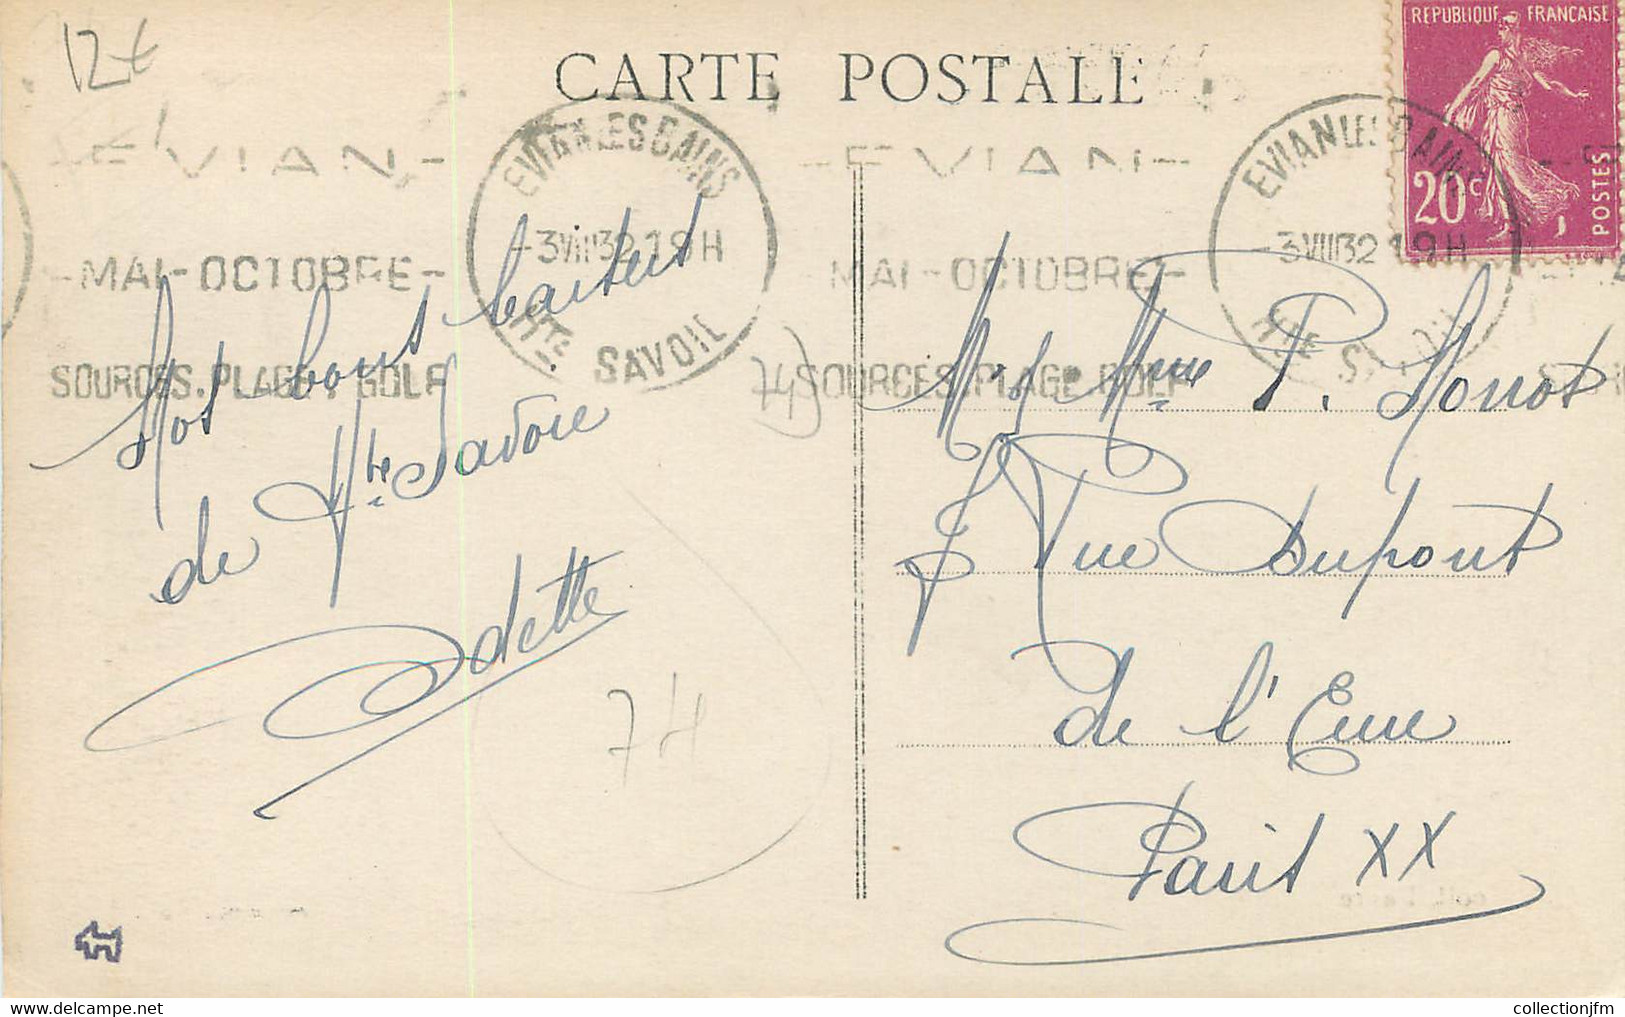 12€
CARTE POSTALE
REPUBLIQUE FRANÇAISE
20c
POSTES
EVIAN LES BAINS
-3 VIII 32 19H
Hte SAVOIE
-EVIAN-
-MAI-OCTOBRE-
SOURCES.PLAGE.GOLF
EVIAN LES BAINS
-3 VIII 32 19H
Hte SAVOIE
-EVIAN-
MAI-OCTOBRE-
SOURCES.PLAGE.GOLF
74)
Nos bons baisers
de Hte Savoie
Odette
74
Mr & Mme P. Monot
7 Rue Dupont
de l'Eure
Paris XX
collectionjfm
www.delcampe.net